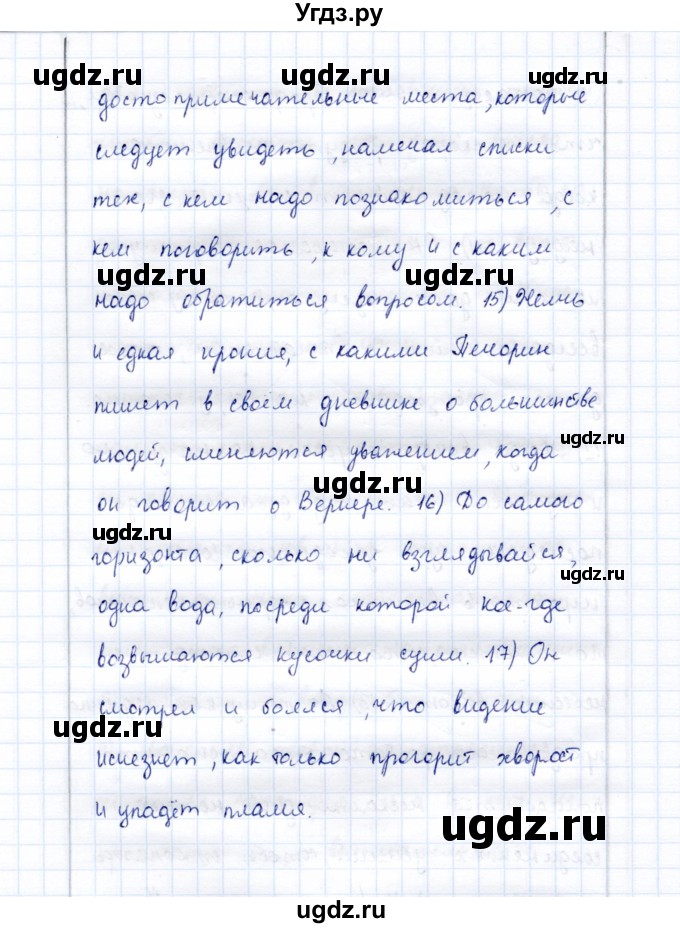 Угдз.ру
ugdz.ru ugdz.ru
достопримечательные места, которые
следует увидеть, намечал списки
тех, с кем надо познакомиться, с
кем поговорить, к кому и с каким
ugdz.ru ugdz.ru
надо обратиться вопросом. 15) Желчь
и едкая ирония, с какими Печорин
пишет в своём дневнике о большинстве
ugdz.ru
людей, сменяются уважением, когда
ugdz.ru
он говорит о Вернере. 16) До самого
ugdz.ru
горизонта, сколько ни вглядывайся,
ugdz.ru
одна вода, посреди которой кое-где
возвышаются кусочки суши. 17) Он
смотрел и боялся, что видение
ugdz.ru
исчезнет, как только прогорит хворост
и упадёт пламя.
ugdz.ru
ugdz.ru